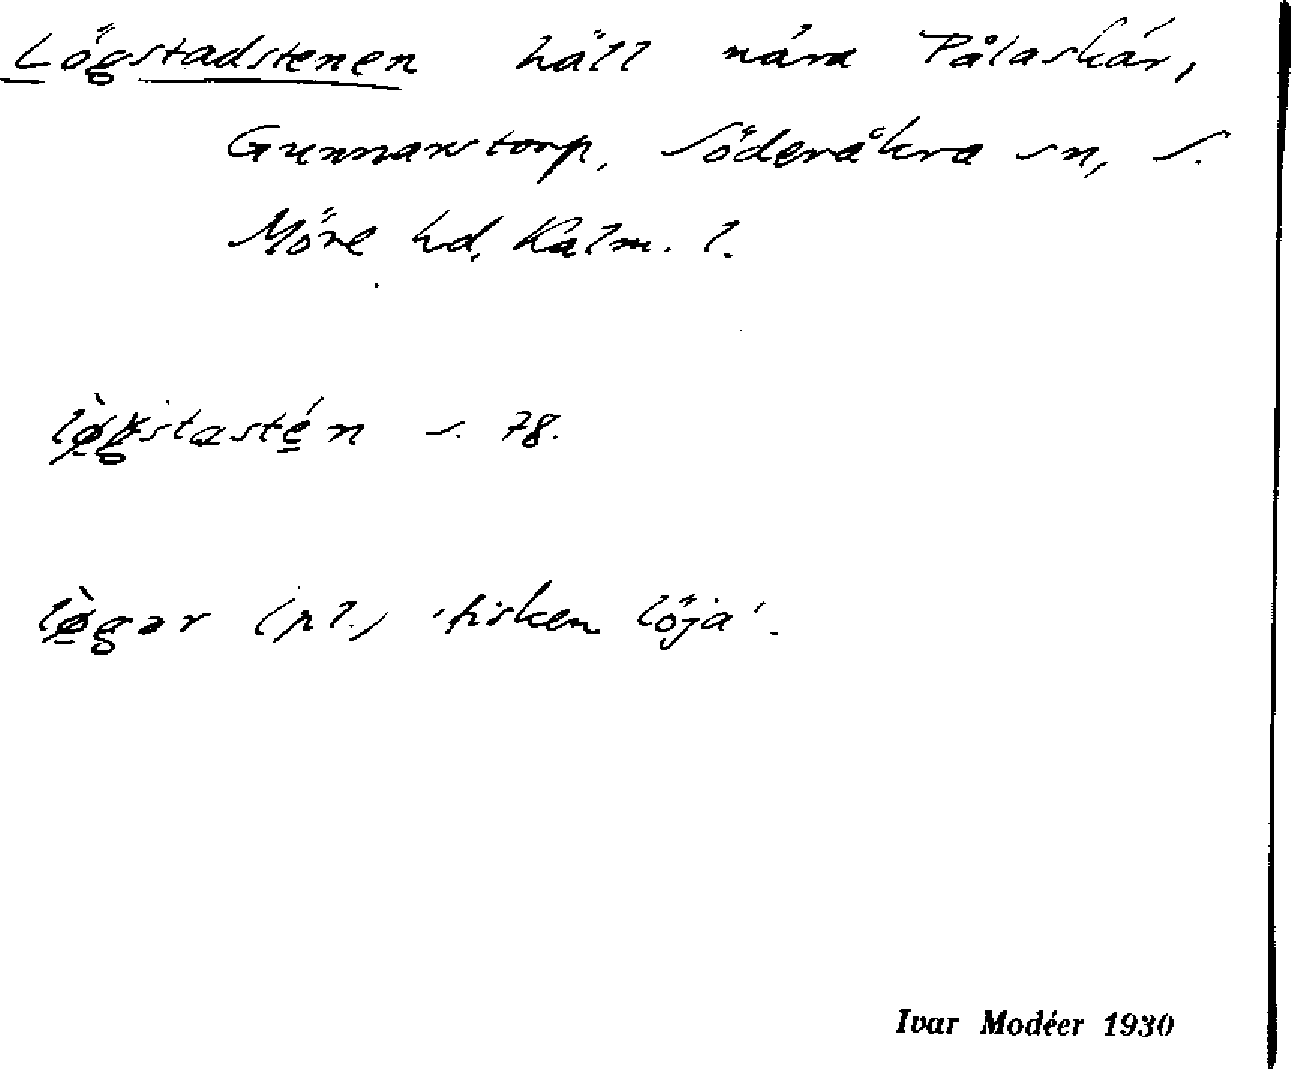 Lögstadstenen häll nära Pålaskär,
Gunnarstorp, Söderåkra sn, S.
Möre hd, Kalm. l.
lø̀gstastén s. 78.
lø̀gar (pl.) 'fisken löja'.
Ivar Modéer 1930